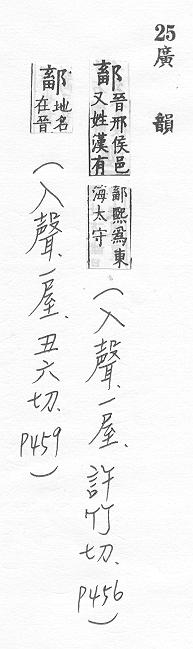 25
廣韻
鄐 晉邢侯邑
又姓漢有
鄐熙爲東
海太守
(入聲.一屋.許竹切.P456)
鄐 地名
在晉
(入聲.一屋.丑六切.P459)